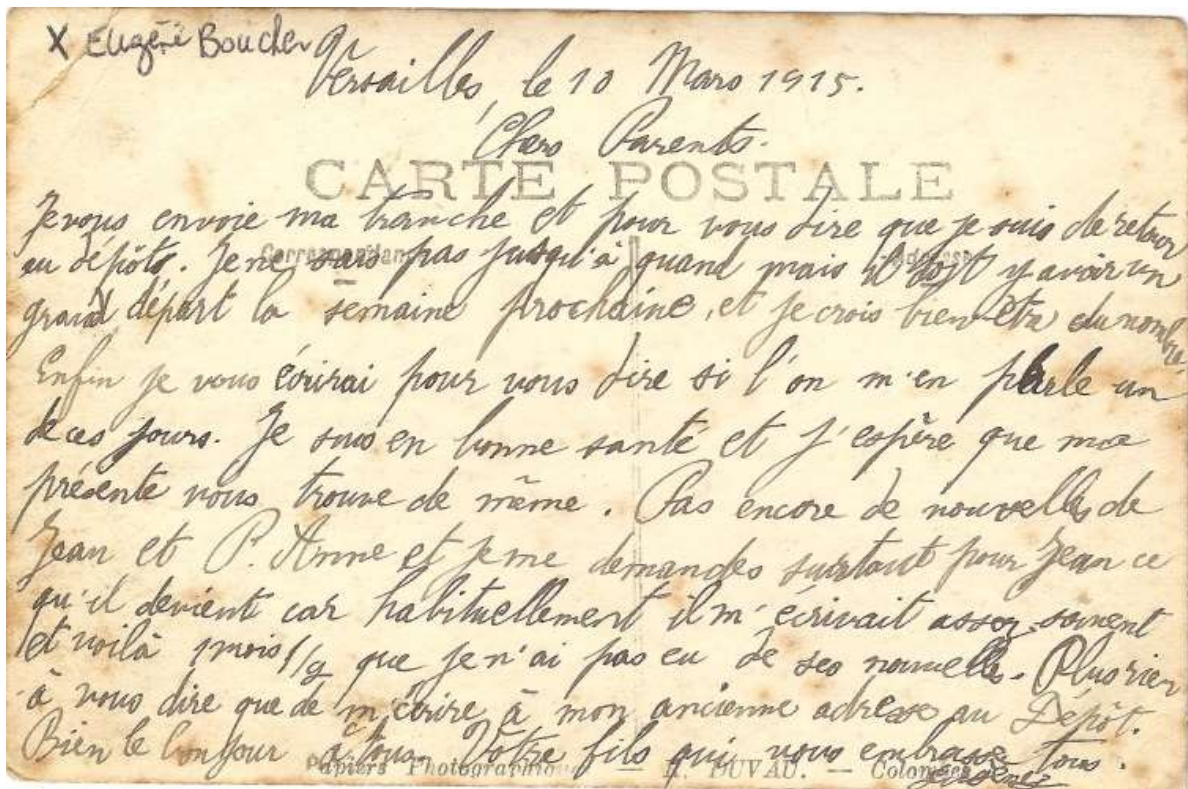 X Eugène Boucher
Versailles, le 10 Mars 1915.
Chers Parents.
CARTE POSTALE
Je vous envoie ma tranche et pour vous dire que je suis de retour
Correspondance
au dépôts. Je ne sais pas jusqu'à quand mais il doit y avoir un
grand départ la semaine prochaine, et je crois bien être du nombre.
Enfin je vous écrirai pour vous dire si l'on m'en parle un
de ces jours. Je suis en bonne santé et j'espère que ma
présente vous trouve de même. Pas encore de nouvelles de
Jean et P. Anne et je me demandes surtout pour Jean ce
qu'il devient car habituellement il m'écrivait assez souvent
et voilà 1 mois 1/2 que je n'ai pas eu de ses nouvelles. Plus rien
à vous dire que de m'écrire à mon ancienne adresse au Dépôt.
Bien le bonjour à tous. Votre fils qui vous embrasse tous.
Papiers Photographiques — DUVAU. — Colombes